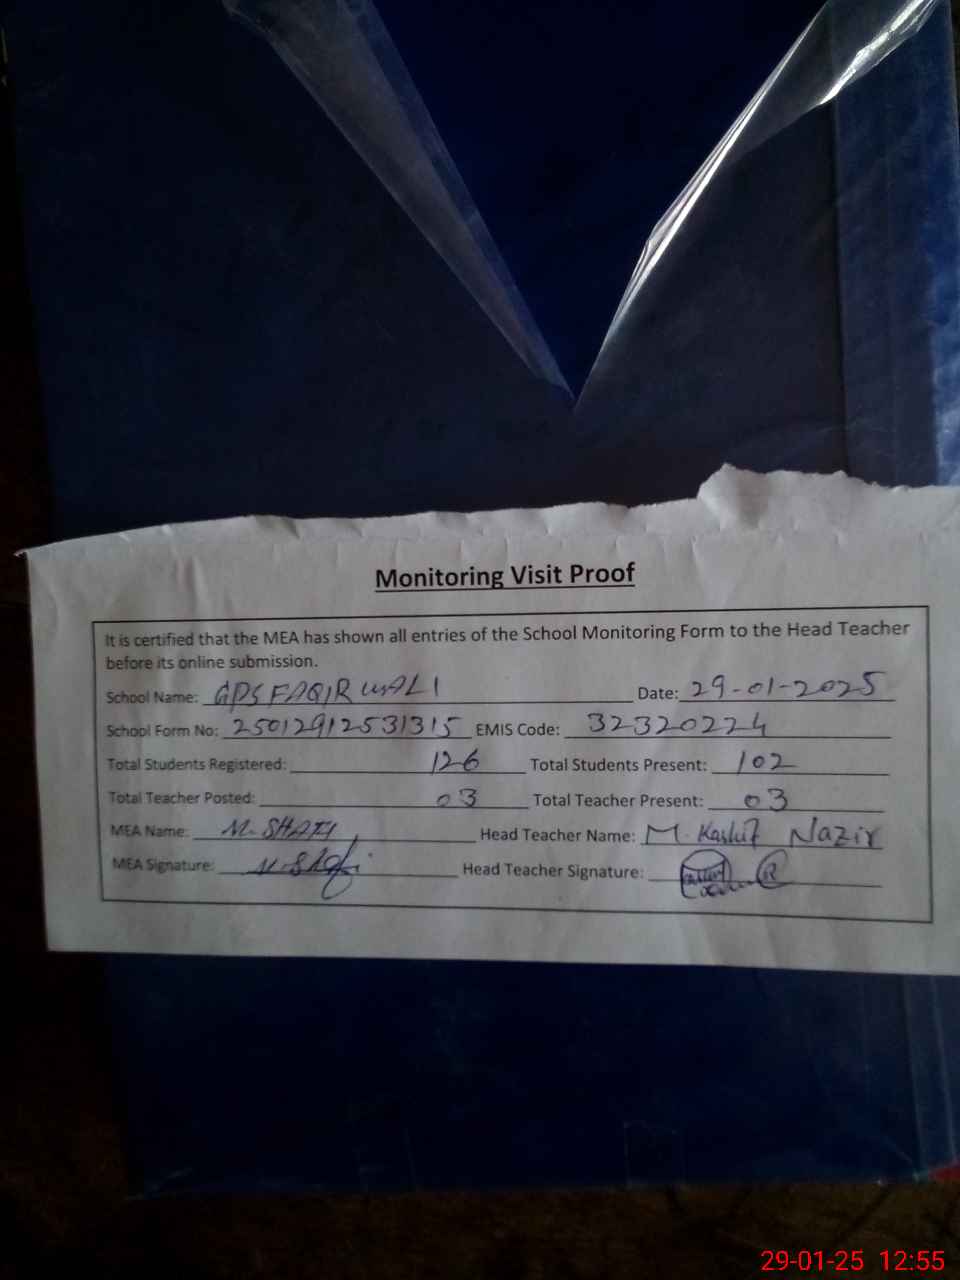 Monitoring Visit Proof
It is certified that the MEA has shown all entries of the School Monitoring Form to the Head Teacher
before its online submission.
School Name: GPS FAQIR WALI Date: 29-01-2025
School Form No: 25012912531315 EMIS Code: 32320224
Total Students Registered: 126 Total Students Present: 102
Total Teacher Posted: 03 Total Teacher Present: 03
MEA Name: M. SHAFI Head Teacher Name: M. Kashif Nazir
MEA Signature: M. Shafi Head Teacher Signature:
29-01-25 12:55